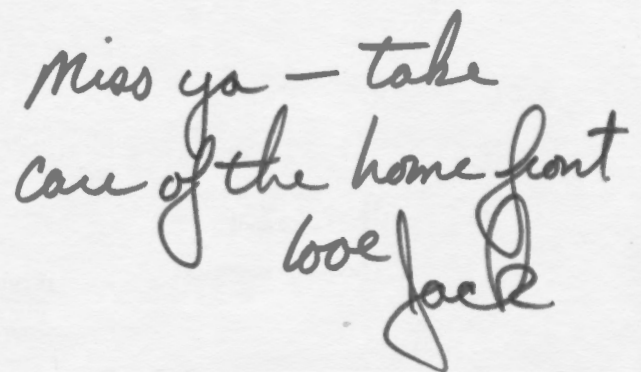 Miss ya — take
care of the home front
love
Jack